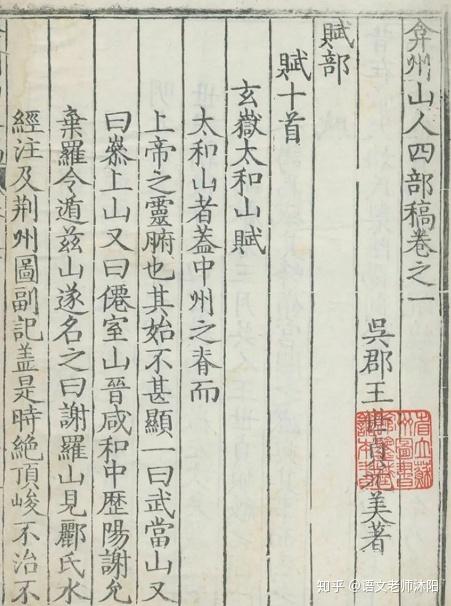 弇州山人四部稿卷之一
吳郡王世貞元美著
賦部
賦十首
玄嶽太和山賦
太和山者蓋中州之脊而
上帝之靈腑也其始不甚顯一曰武當山又
曰嵾上山又曰僊室山晉咸和中歷陽謝允
棄羅令遁茲山遂名之曰謝羅山見酈氏水
經注及荆州圖副記蓋是時絶頂峻不治不
知乎 @语文老师沐阳